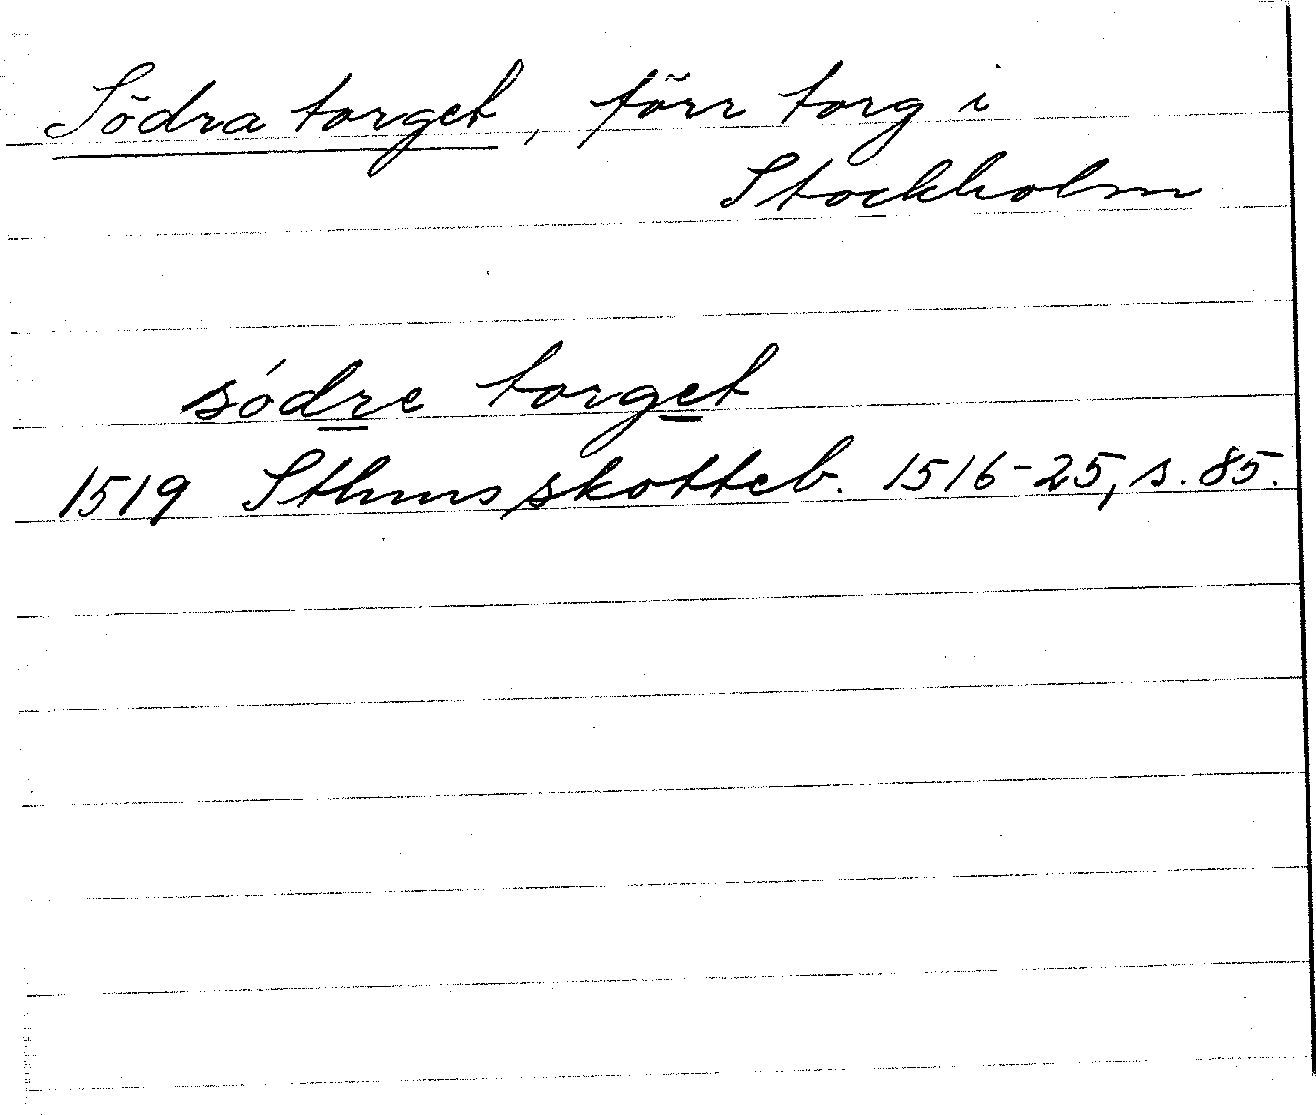 Södra torget, förr torg i
Stockholm
sódre torget
1519 Sthms skotteb. 1516-25, s. 85.